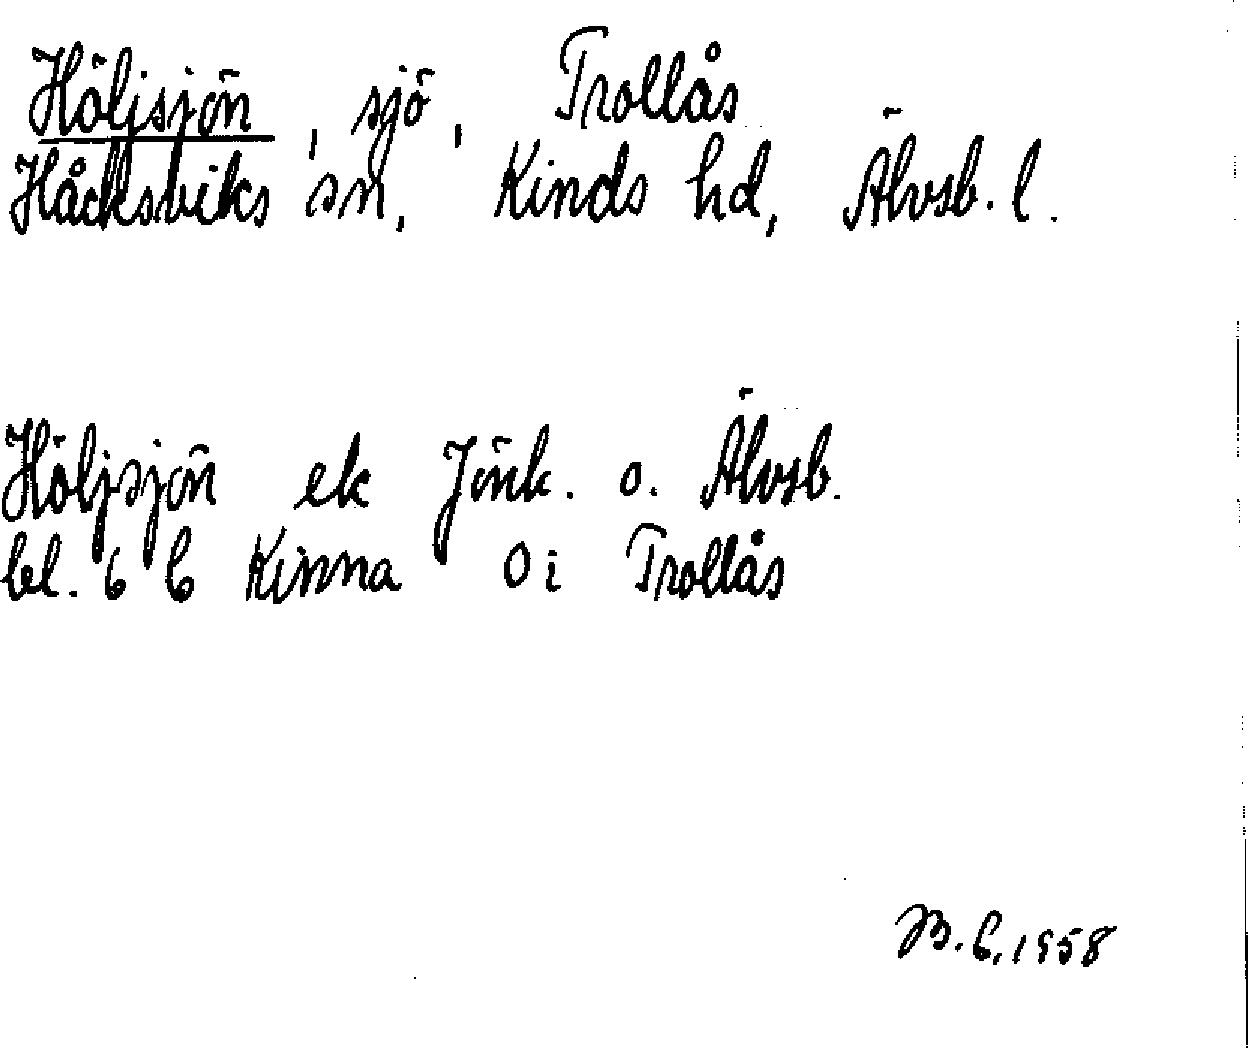 Höljsjön, sjö, Trollås
Håcksviks sn, Kinds hd, Älvsb. l.
Höljsjön ek Jönk. o. Älvsb.
bl. 6 C Kinna O i Trollås
B. C. 1958